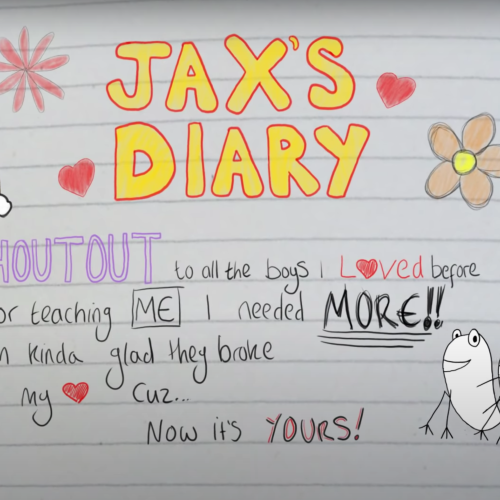 JAX'S
DIARY
HOUTOUT to all the boys I Loved before
or teaching ME I needed MORE!!
n kinda glad they broke
my cuz...
Now it's YOURS!